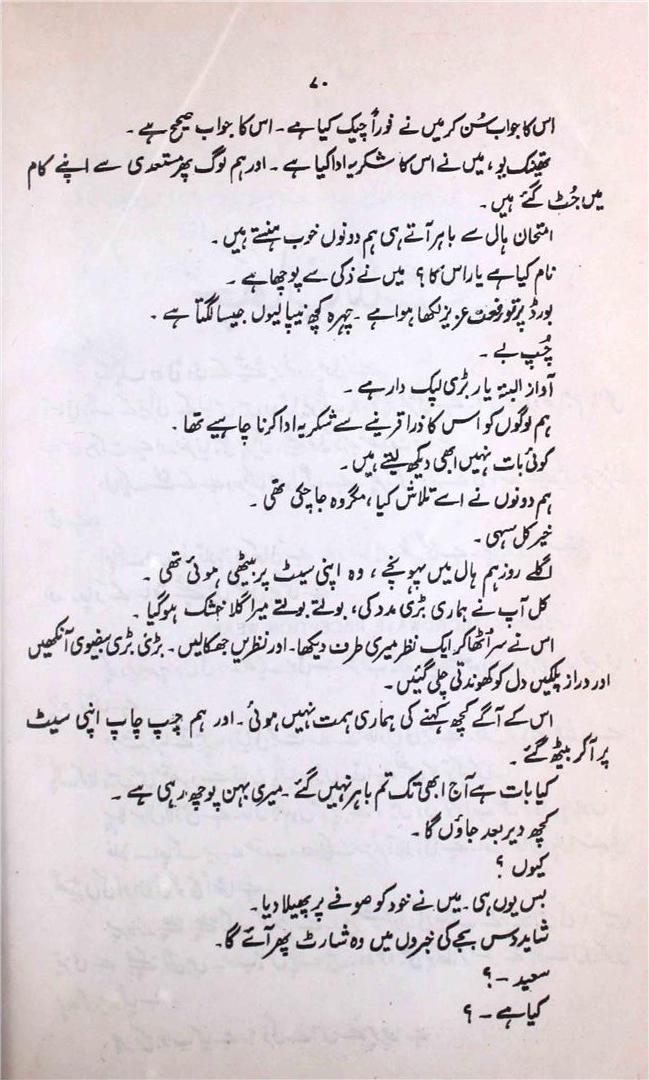 ۷۰
اس کا جواب سُن کر میں نے فوراً چیک کیا ہے۔ اس کا جواب صحیح ہے۔
تھینک یو، میں نے اس کا شکریہ ادا کیا ہے۔ اور ہم لوگ پھر مستعدی سے اپنے کام
میں جُٹ گئے ہیں۔
امتحان ہال سے باہر آتے ہی ہم دونوں خوب ہنستے ہیں۔
نام کیا ہے یار اس کا؟ میں نے ذکی سے پوچھا ہے۔
بورڈ پر تو رفعت عزیز لکھا ہوا ہے۔ چہرہ کچھ نیپالیوں جیسا لگتا ہے۔
چُپ بے۔
آواز البتہ یار بڑی لپک دار ہے۔
ہم لوگوں کو اس کا ذرا قرینے سے شکریہ ادا کرنا چاہیے تھا۔
کوئی بات نہیں ابھی دیکھ لیتے ہیں۔
ہم دونوں نے اسے تلاش کیا، مگر وہ جا چکی تھی۔
خیر کل سہی۔
اگلے روز ہم ہال میں پہونچے، وہ اپنی سیٹ پر بیٹھی ہوئی تھی۔
کل آپ نے ہماری بڑی مدد کی، بولتے بولتے میرا گلا خشک ہو گیا۔
اس نے سر اُٹھا کر ایک نظر میری طرف دیکھا۔ اور نظریں جھکا لیں۔ بڑی بڑی بیضوی آنکھیں
اور دراز پلکیں دل کو کھوندتی چلی گئیں۔
اس کے آگے کچھ کہنے کی ہماری ہمت نہیں ہوئی۔ اور ہم چپ چاپ اپنی سیٹ
پر آ کر بیٹھ گئے۔
کیا بات ہے آج ابھی تک تم باہر نہیں گئے۔ میری بہن پوچھ رہی ہے۔
کچھ دیر بعد جاؤں گا۔
کیوں؟
بس یوں ہی۔ میں نے خود کو صوفے پر پھیلا دیا۔
شاید دس بجے کی خبروں میں وہ شارٹ پھر آئے گا۔
سعید۔؟
کیا ہے۔؟